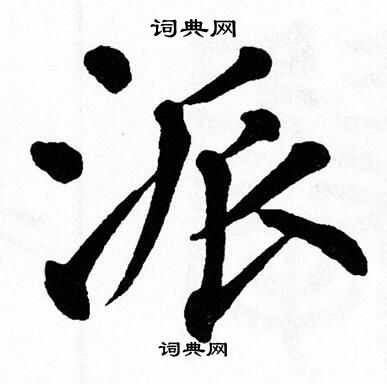 词典网
派
词典网